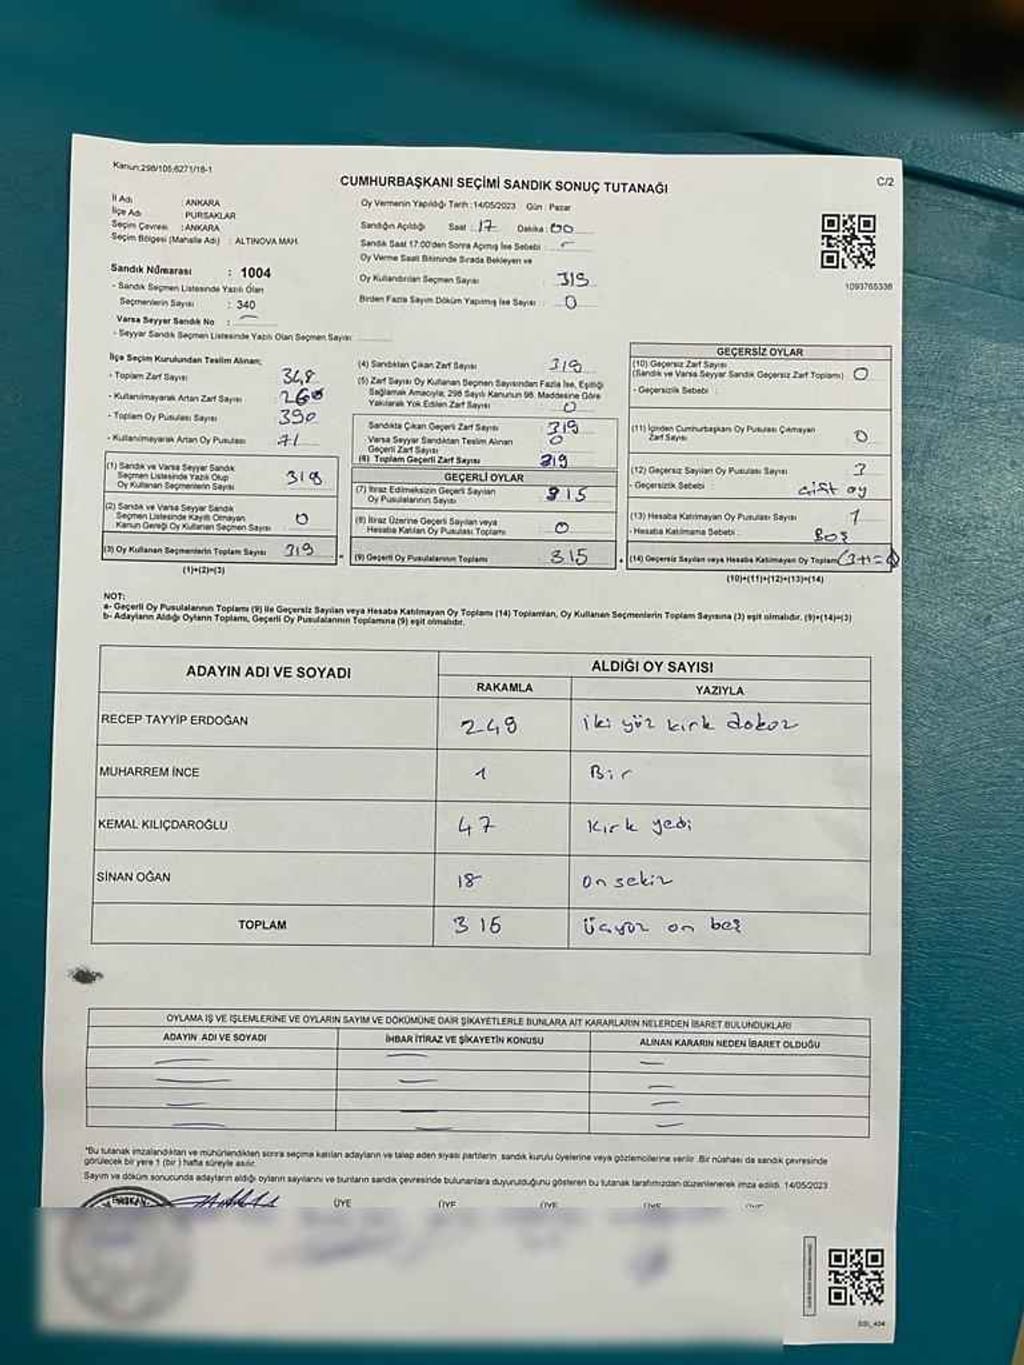 Kanun:298/105;6271/16-1
CUMHURBAŞKANI SEÇİMİ SANDIK SONUÇ TUTANAĞI
C/2
İl Adı : ANKARA
İlçe Adı : PURSAKLAR
Seçim Çevresi : ANKARA
Seçim Bölgesi (Mahalle Adı) : ALTINOVA MAH.
Sandık Numarası : 1004
- Sandık Seçmen Listesinde Yazılı Olan
Seçmenlerin Sayısı : 340
Varsa Seyyar Sandık No :
- Seyyar Sandık Seçmen Listesinde Yazılı Olan Seçmen Sayısı
Oy Vermenin Yapıldığı Tarih :14/05/2023 Gün : Pazar
Sandığın Açıldığı Saat : 17 Dakika : 00
Sandık Saat 17:00'den Sonra Açılmış İse Sebebi :
Oy Verme Saati Bitiminde Sırada Bekleyen ve
Oy Kullandırılan Seçmen Sayısı : 319
Birden Fazla Sayım Döküm Yapılmış İse Sayısı : 0
1093765336
İlçe Seçim Kurulundan Teslim Alınan;
- Toplam Zarf Sayısı 348
- Kullanılmayarak Artan Zarf Sayısı
- Toplam Oy Pusulası Sayısı 390
- Kullanılmayarak Artan Oy Pusulası 71
(1) Sandık ve Varsa Seyyar Sandık
Seçmen Listesinde Yazılı Olup
Oy Kullanan Seçmenlerin Sayısı 319
(2) Sandık ve Varsa Seyyar Sandık
Seçmen Listesinde Kayıtlı Olmayan
Kanun Gereği Oy Kullanan Seçmen Sayısı 0
(3) Oy Kullanan Seçmenlerin Toplam Sayısı 319
(1)+(2)=(3)
(4) Sandıktan Çıkan Zarf Sayısı 319
(5) Zarf Sayısı Oy Kullanan Seçmen Sayısından Fazla İse, Eşitliği
Sağlamak Amacıyla; 298 Sayılı Kanunun 98. Maddesine Göre
Yakılarak Yok Edilen Zarf Sayısı 0
Sandıkta Çıkan Geçerli Zarf Sayısı 319
Varsa Seyyar Sandıktan Teslim Alınan 0
Geçerli Zarf Sayısı
(6) Toplam Geçerli Zarf Sayısı 319
GEÇERLİ OYLAR
(7) İtiraz Edilmeksizin Geçerli Sayılan
Oy Pusulalarının Sayısı 315
(8) İtiraz Üzerine Geçerli Sayılan veya
Hesaba Katılan Oy Pusulası Toplamı 0
(9) Geçerli Oy Pusulalarının Toplamı 315
GEÇERSİZ OYLAR
(10) Geçersiz Zarf Sayısı
(Sandık ve Varsa Seyyar Sandık Geçersiz Zarf Toplamı) 0
- Geçersizlik Sebebi :
(11) İçinden Cumhurbaşkanı Oy Pusulası Çıkmayan
Zarf Sayısı 0
(12) Geçersiz Sayılan Oy Pusulası Sayısı 3
- Geçersizlik Sebebi : çift oy
(13) Hesaba Katılmayan Oy Pusulası Sayısı 1
- Hesaba Katılmama Sebebi : Boş
(14) Geçersiz Sayılan veya Hesaba Katılmayan Oy Toplamı
(10)+(11)+(12)+(13)=(14)
NOT:
a- Geçerli Oy Pusulalarının Toplamı (9) ile Geçersiz Sayılan veya Hesaba Katılmayan Oy Toplamı (14) Toplamları, Oy Kullanan Seçmenlerin Toplam Sayısına (3) eşit olmalıdır. (9)+(14)=(3)
b- Adayların Aldığı Oyların Toplamı, Geçerli Oy Pusulalarının Toplamına (9) eşit olmalıdır.
ADAYIN ADI VE SOYADI ALDIĞI OY SAYISI
RAKAMLA YAZIYLA
RECEP TAYYİP ERDOĞAN 249 iki yüz kırk dokuz
MUHARREM İNCE 1 Bir
KEMAL KILIÇDAROĞLU 47 Kırk yedi
SİNAN OĞAN 18 on sekiz
TOPLAM 315 Üçyüz on beş
OYLAMA İŞ VE İŞLEMLERİNE VE OYLARIN SAYIM VE DÖKÜMÜNE DAİR ŞİKAYETLERLE BUNLARA AİT KARARLARIN NELERDEN İBARET BULUNDUKLARI
ADAYIN ADI VE SOYADI İHBAR İTİRAZ VE ŞİKAYETİN KONUSU ALINAN KARARIN NEDEN İBARET OLDUĞU
*Bu tutanak imzalandıktan ve mühürlendikten sonra seçime katılan adayların ve talep eden siyasi partilerin sandık kurulu üyelerine veya gözlemcilerine verilir. Bir nüshası da sandık çevresinde
görülecek bir yere 1 (bir) hafta süreyle asılır.
Sayım ve döküm sonucunda adayların aldığı oyların sayılarını ve bunların sandık çevresinde bulunanlara duyurulduğunu gösteren bu tutanak tarafımızdan düzenlenerek imza edildi. 14/05/2023
ÜYE ÜYE ÜYE ÜYE ÜYE